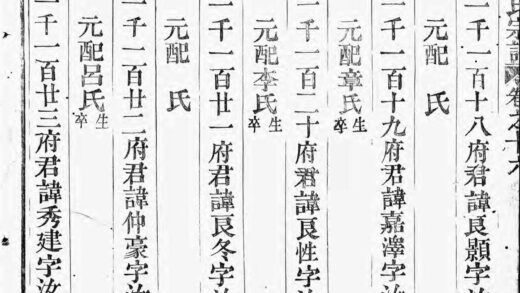 氏宗譜卷之十六
千一百十八府君諱良顥字汝
元配 氏
千一百十九府君諱嘉澤字汝
元配章氏生卒
千一百二十府君諱良性字汝
元配李氏生卒
千一百廿一府君諱良冬字汝
元配 氏
千一百廿二府君諱仲豪字汝
元配呂氏生卒
千一百廿三府君諱秀建字汝